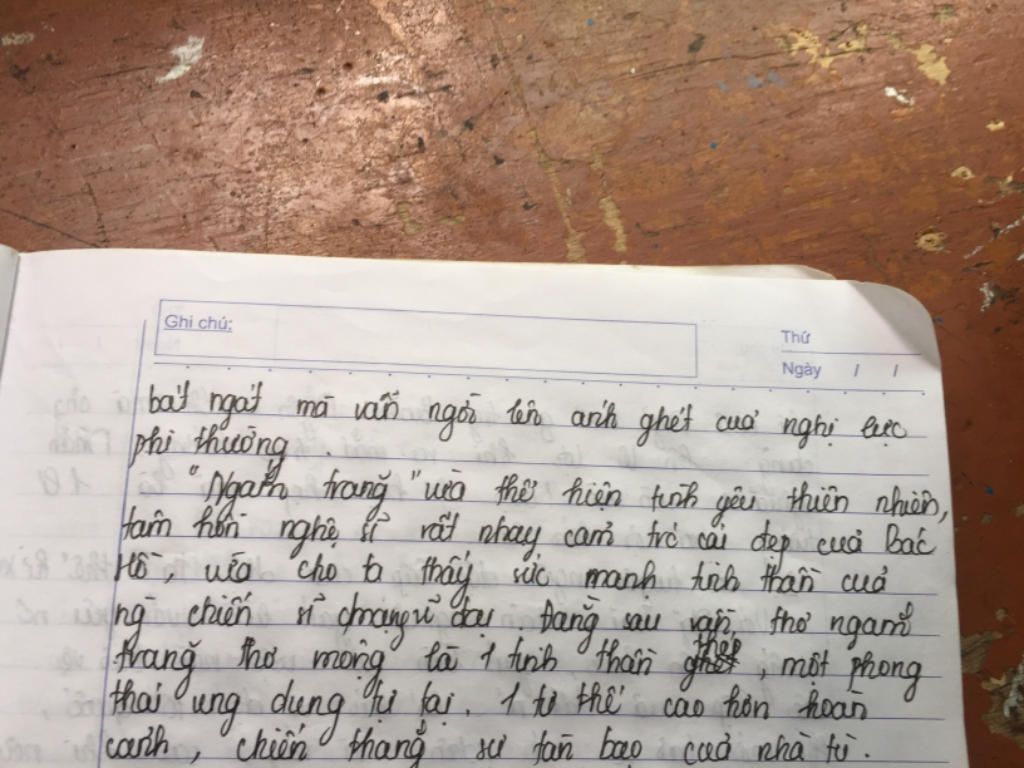 Ghi chú:
Thứ
Ngày / /
bát ngát mà vẫn ngời lên ánh ghét của nghị lực
phi thường.
"Ngắm trăng" vừa thể hiện tình yêu thiên nhiên,
tâm hồn nghệ sĩ rất nhạy cảm trc cái đẹp của Bác
Hồ, vừa cho ta thấy sức mạnh tinh thần của
ng chiến sĩ vĩ đại. Đằng sau vần thơ ngắm
trăng thơ mộng là 1 tinh thần thép, một phong
thái ung dung tự tại. 1 tư thế cao hơn hoàn
cảnh, chiến thắng sự tàn bạo của nhà tù.